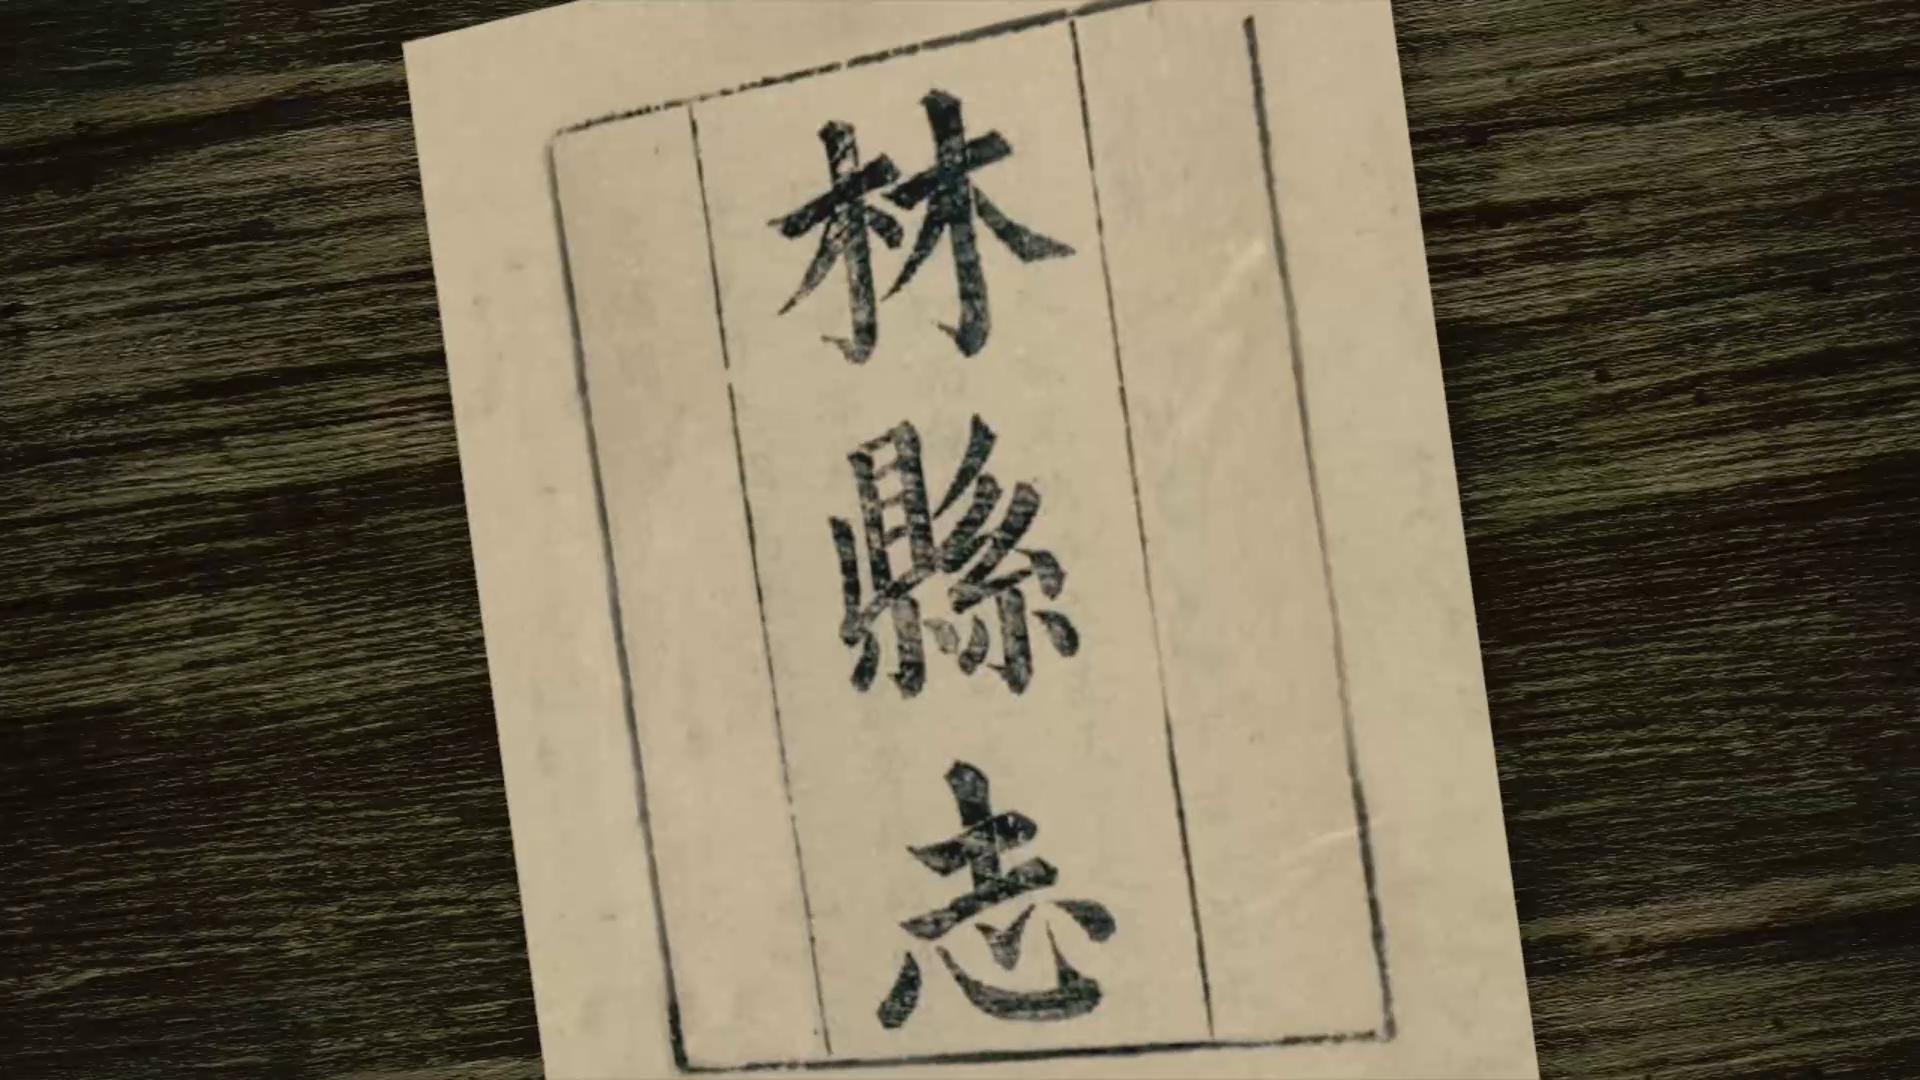 林縣志